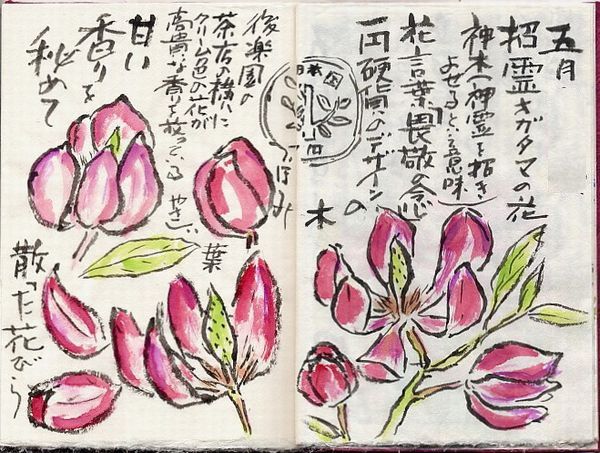 五月
招霊オガタマの花
神木(神霊を招き
よせるという意味)
花言葉「畏敬の念」
一円硬貨のデザインの
木
1
後楽園の
茶店の横に
クリーム色の花が
高貴な香りを放っている
つぼみ
甘い
香りを
秘めて
葉
散った花びら